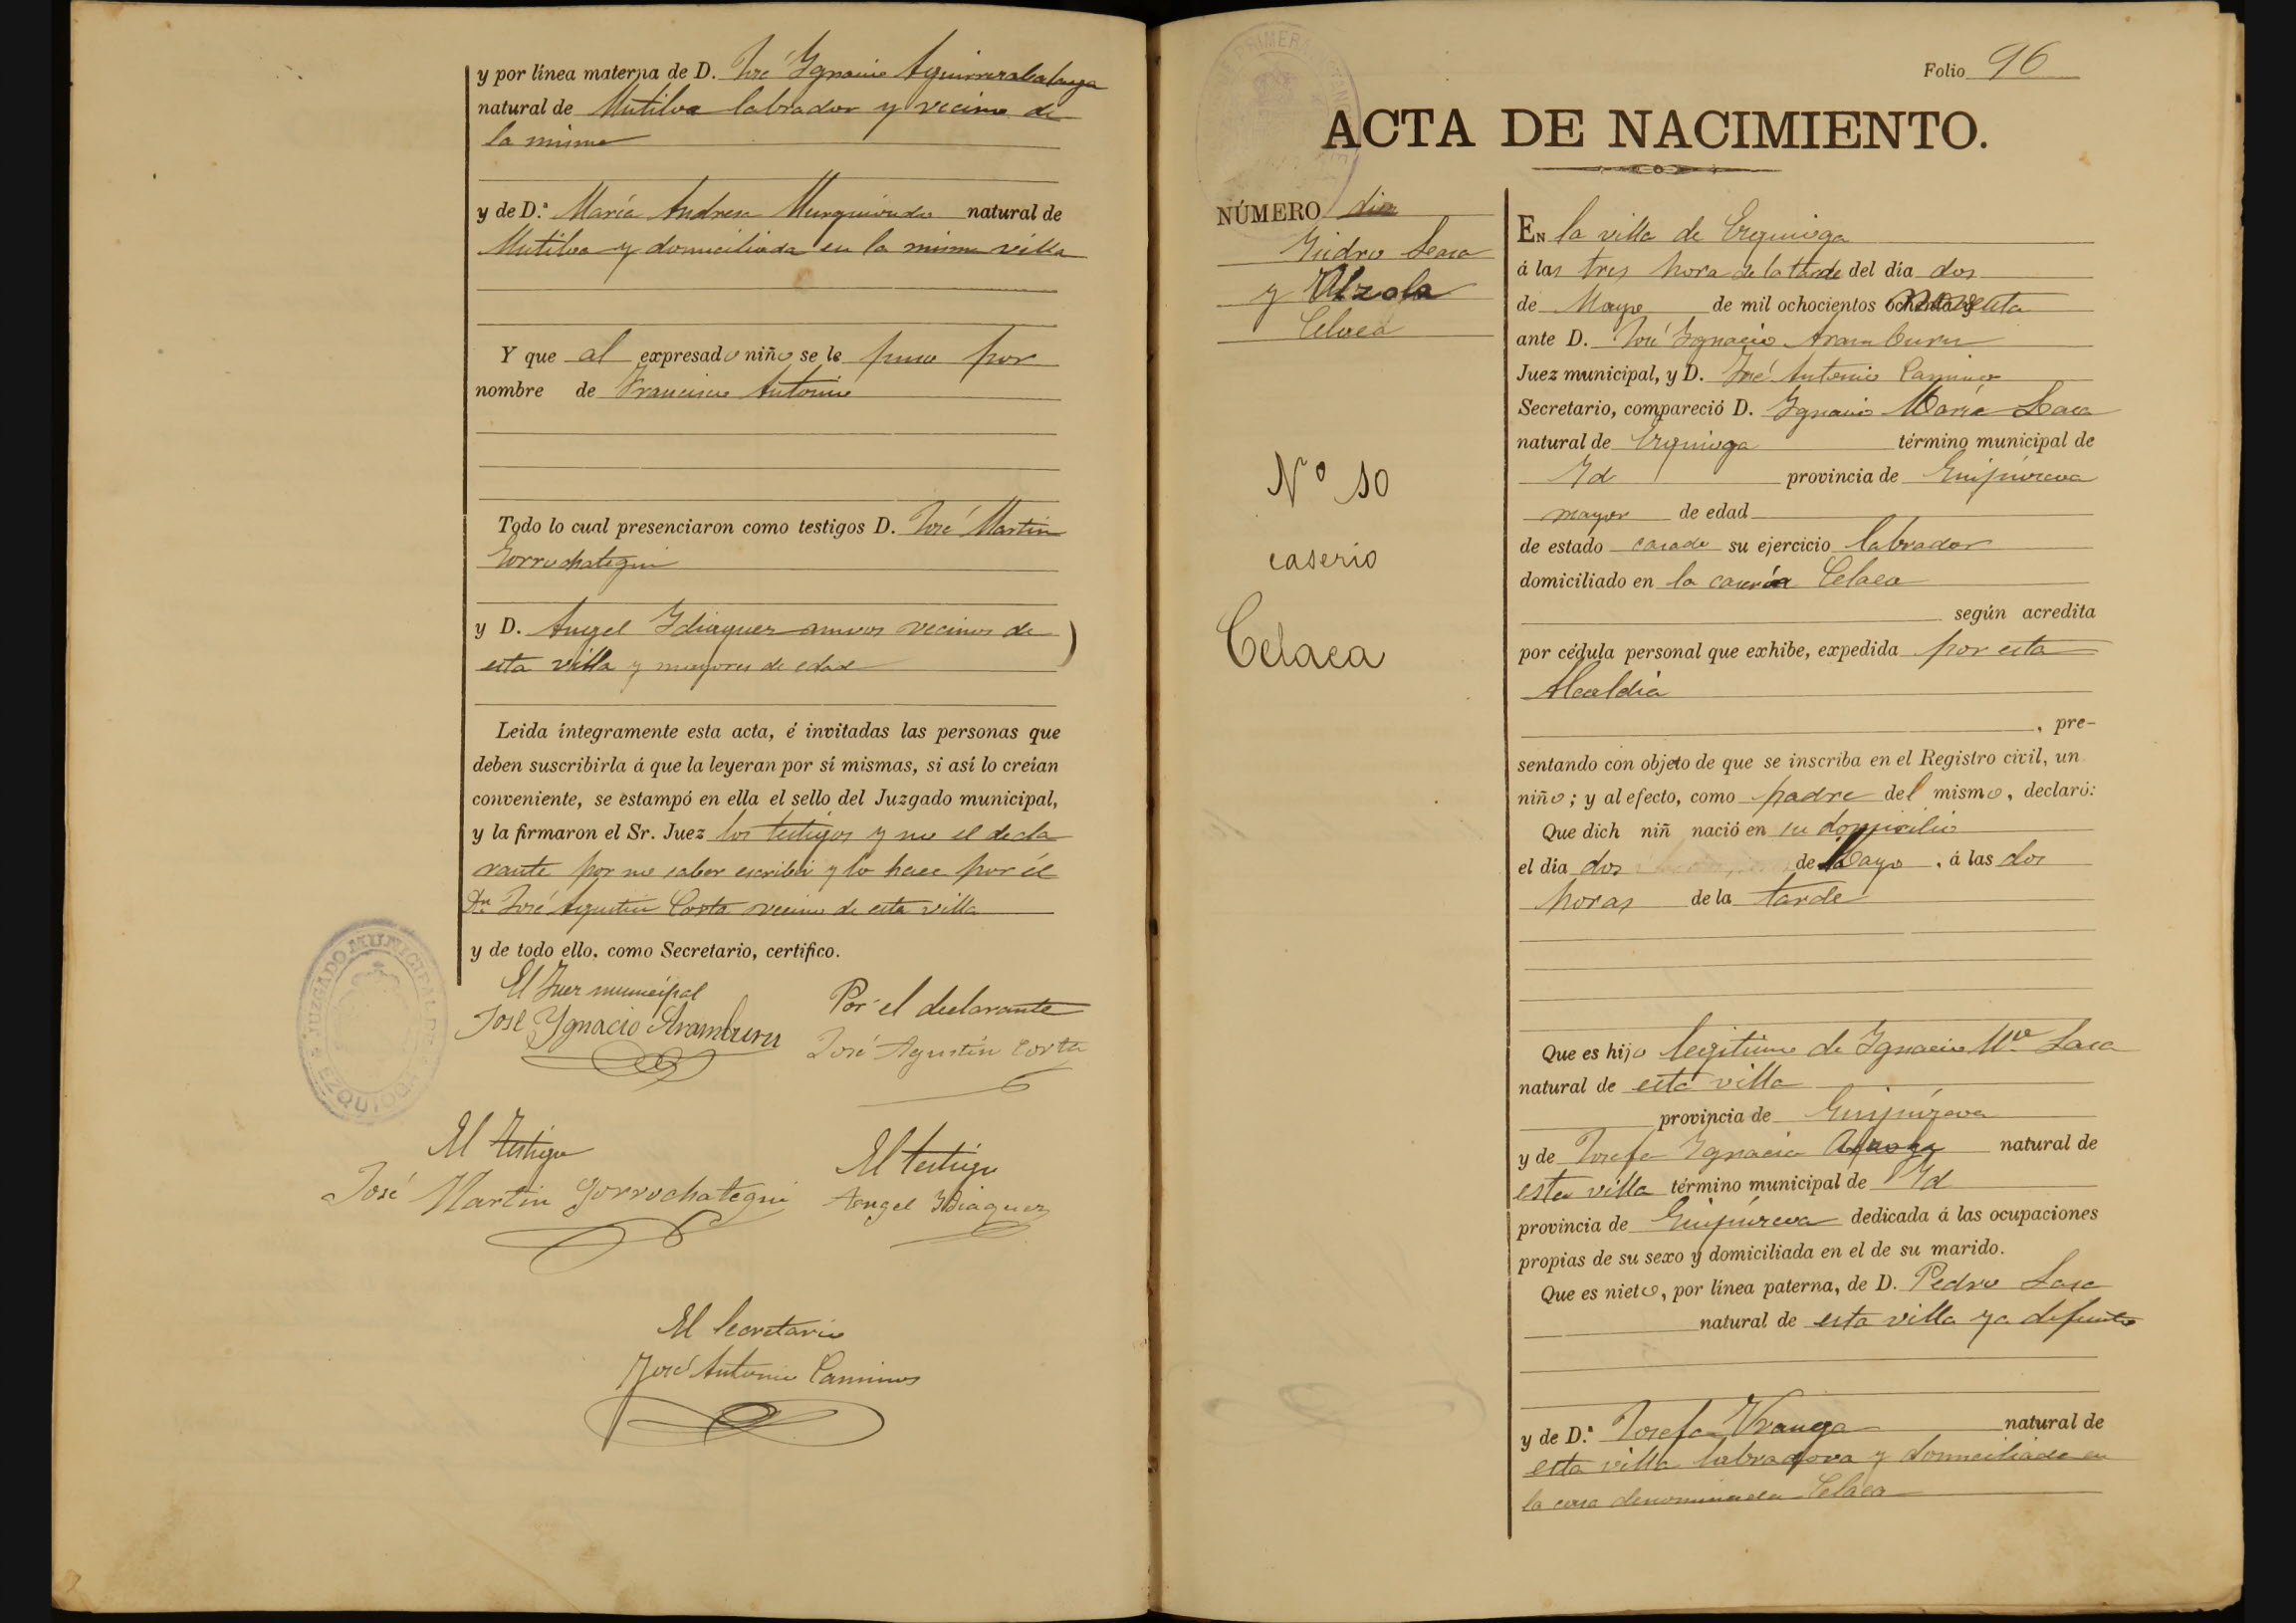 y por línea materna de D. José Ygnacio Aguirrezabalaga
natural de Mutiloa labrador y vecino de
la misma
y de D.ª María Andresa Murguiondo natural de
Mutiloa y domiciliada en la misma villa
Y que al expresado niño se le puso por
nombre de Francisco Antonio
Todo lo cual presenciaron como testigos D. José Martin
Gorrochategui
y D. Angel Ydiaquez amvos vecinos de
esta villa y mayores de edad
Leida íntegramente esta acta, é invitadas las personas que
deben suscribirla á que la leyeran por sí mismas, si así lo creían
conveniente, se estampó en ella el sello del Juzgado municipal,
y la firmaron el Sr. Juez los testigos y no el decla
rante por no saber escribir y lo hace por él
Dn José Agustin Costa vecino de esta villa
y de todo ello, como Secretario, certifico.
JUZGADO MUNICIPAL DE
EZQUIOGA
El Juez municipal
José Ygnacio Aramburu
Por el declarante
José Agustin Costa
El testigo
José Martin Gorrochategui
El testigo
Angel Ydiaquez
El Secretario
José Antonio Caminos
Folio 96
ACTA DE NACIMIENTO.
NÚMERO diez
Ysidro Lasa
y Alzola
Celaea
Nº 10
caserio
Celaea
EN la villa de Ezquioga
á las tres hora de la tarde del día dos
de Mayo de mil ochocientos noventa
ante D. José Ygnacio Aramburu
Juez municipal, y D. José Antonio Caminos
Secretario, compareció D. Ygnacio María Lasa
natural de Ezquioga término municipal de
Yd provincia de Guipúzcoa
mayor de edad
de estado casado su ejercicio labrador
domiciliado en la casería Celaea
según acredita
por cédula personal que exhibe, expedida por esta
Alcaldia
, pre-
sentando con objeto de que se inscriba en el Registro civil, un
niño; y al efecto, como padre del mismo, declaró:
Que dich niñ nació en su domicilio
el día dos de Mayo, á las dos
horas de la tarde
Que es hijo legitimo de Ygnacio Mª Lasa
natural de esta villa
provincia de Guipúzcoa
y de Josefa Ygnacia Alzola natural de
esta villa término municipal de Yd
provincia de Guipúzcoa dedicada á las ocupaciones
propias de su sexo y domiciliada en el de su marido.
Que es nieto, por línea paterna, de D. Pedro Lasa
natural de esta villa ya defunto
y de D.ª Josefa Vranga natural de
esta villa labradora y domiciliada en
la casa denominada Celaea